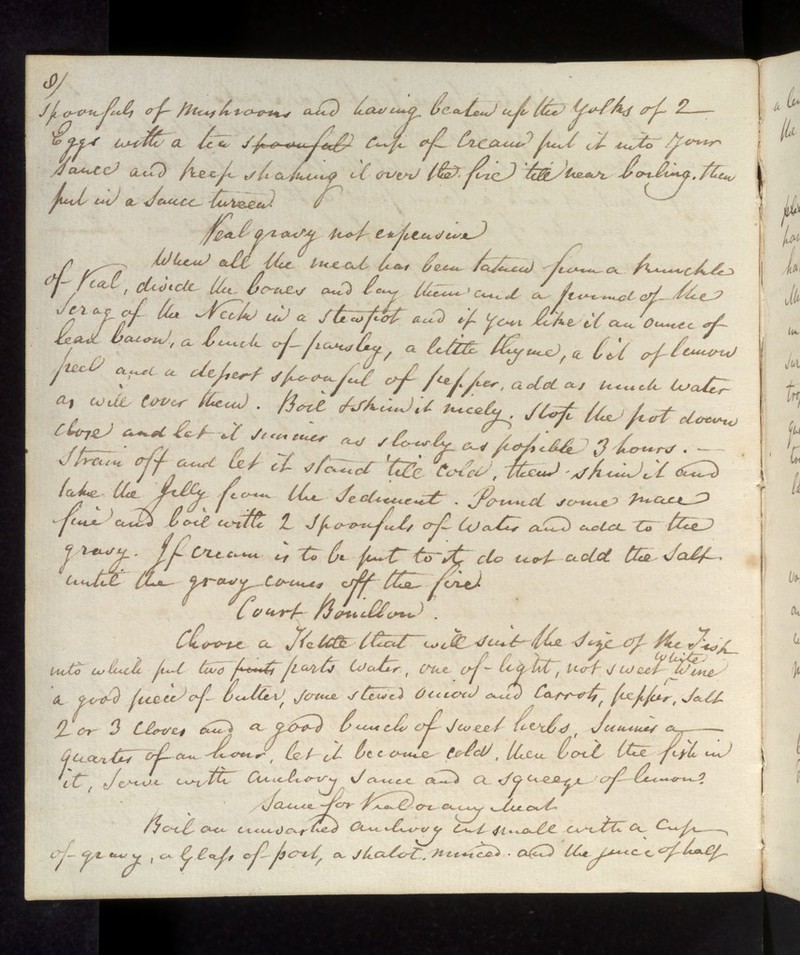 8/
spoonfuls of Mushrooms and having beaten up the Yolks of 2
Eggs with a tea spoonful cup of Cream put it into your
sauce and keep shaking it over the fire 'till near boiling. then
put in a Sauce tureen.
Veal gravy not expensive
When all the meat has been taken from a knuckle
of Veal, divide the bones and lay them and a pound of the
Scrag of the Neck in a stewpot and if you like it an ounce of
lean bacon, a bunch of parsley, a little thyme, a bit of lemon
peel and a desert spoonful of pepper, add as much water
as will cover them. Boil & skim it nicely. Stop the pot down
close and let it simmer as slowly as possible 3 hours. —
Strain off and let it stand 'till cold, then skim it and
take the Jelly from the Sediment. Pound some mace
fine and boil with 2 spoonfuls of water and add to the
gravy. If cream is to be put to it, do not add the Salt
until the gravy comes off the fire.
Court Bouillon.
Choose a Kettle that will suit the size of the Fish
into which put two pints parts water, one of light, not sweet White Wine
a good piece of butter, some stewed onion and Carrots, pepper, Salt
2 or 3 Cloves and a good bunch of sweet herbs, Simmer a
quarter of an hour, let it become cold, then boil the fish in
it, Serve with Anchovy Sauce and a squeeze of lemon.
Sauce for Veal or any Meat
Boil an unwashed anchovy cut small with a Cup
of gravy, a Glass of port, a shalot minced and the juice of half